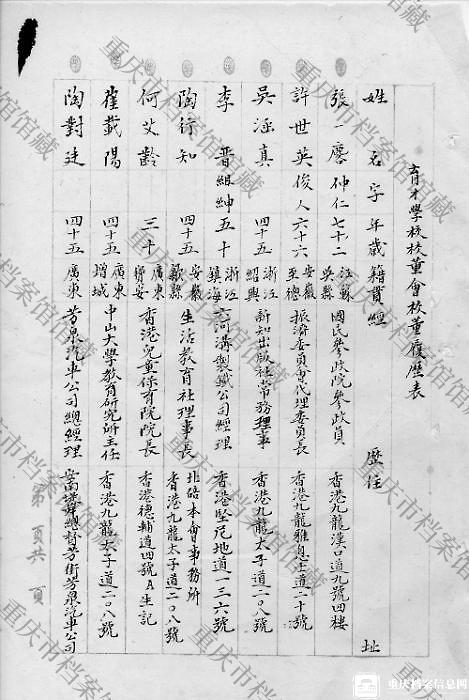 育才學校校董會校董履歷表
姓 名字年歲籍貫經 歷住 址
張一麐 仲仁 七十二 江蘇吳縣 國民參政院參政員 香港九龍漢口道九號四樓
許世英 俊人 六十六 安徽至德 振濟委員會代理委員長 香港九龍雅息士道二十號
吳涵真 四十五 浙江紹興 新知出版社常務理事 香港九龍太子道二〇八號
李晋 組紳 五十 浙江鎮海 六河溝製鐵公司經理 香港堅尼地道一三六號
陶行知 四十五 安徽歙縣 生活教育社理事長 北碚本會事務所 香港九龍太子道二〇八號
何艾齡 三十 廣東寶安 香港兒童保育院院長 香港德輔道四號A生記
崔載陽 四十五 廣東增城 中山大學教育研究所主任 香港九龍太子道二〇八號
陶對廷 四十五 廣東 芳泉汽車公司總經理 總督芳街芳泉汽車公司
第 頁共 頁
重庆市档案馆馆藏
重庆档案信息网